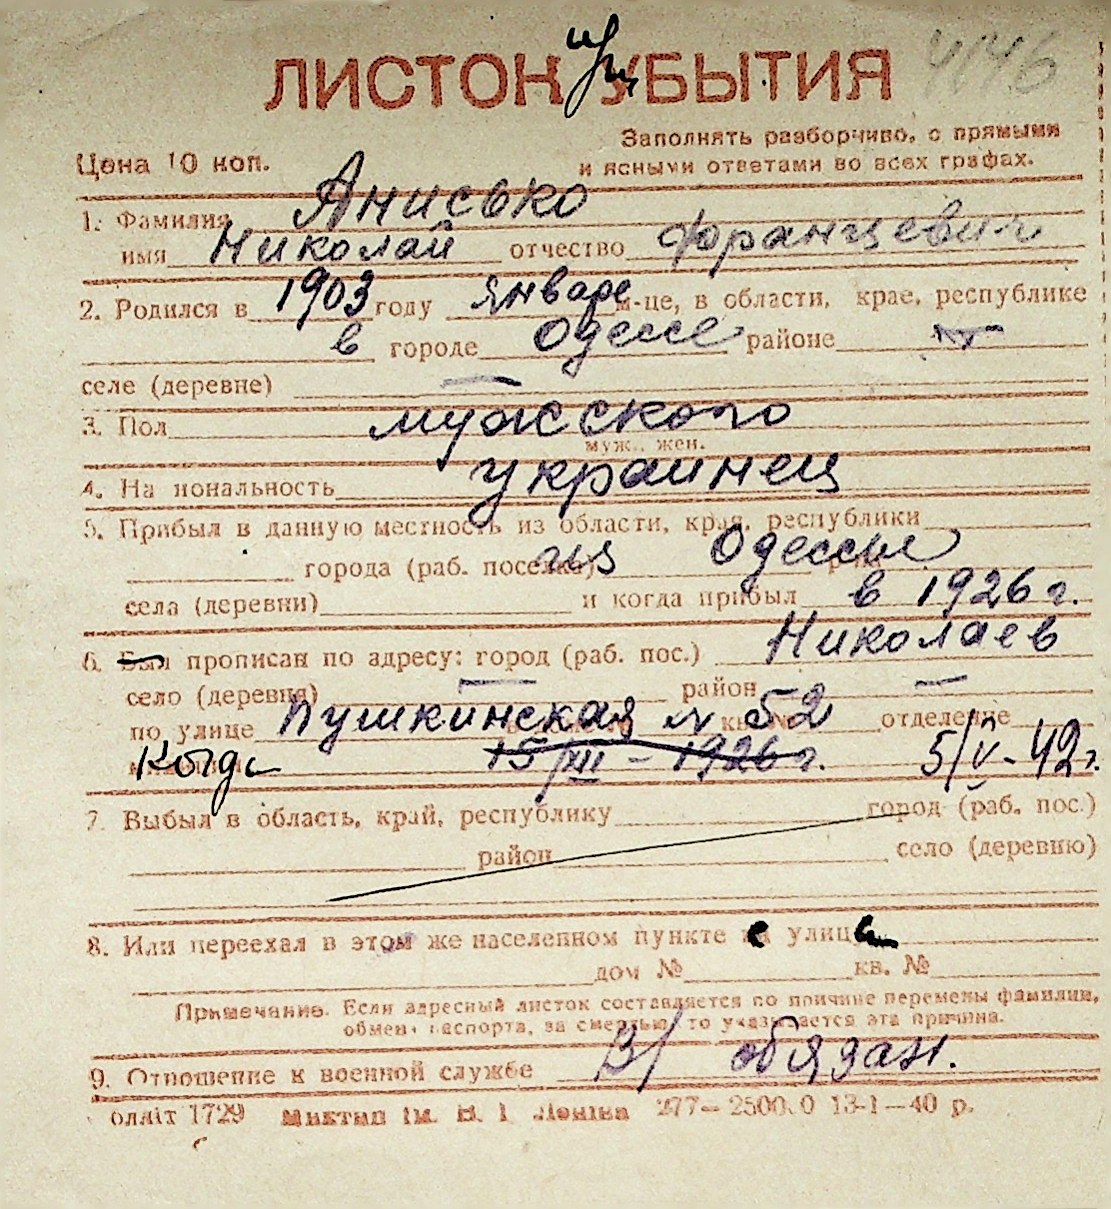 ЛИСТОК при УБЫТИЯ 4146
Заполнять разборчиво, с прямыми
Цена 10 коп. и ясными ответами во всех графах.
1. Фамилия Анисько
имя Николай отчество Францевич
2. Родился в 1903 году январе м-це, в области, крае, республике
в городе Одессе районе —
селе (деревне) —
3. Пол мужского
муж., жен.
4. Национальность украинец
5. Прибыл в данную местность из области, края, республики
города (раб. поселка) из Одессы
села (деревни) и когда прибыл в 1926 г.
6. Был прописан по адресу: город (раб. пос.) Николаев
село (деревня) — район —
по улице Пушкинская № 52 отделение
Когда 15/XII – 1926 г. 5/V-42 г.
7. Выбыл в область, край, республику город (раб. пос.)
район село (деревню)
8. Или переехал в этом же населенном пункте с улицы
дом № кв. №
Примечание. Если адресный листок составляется по причине перемены фамилии,
обмена паспорта, за смертью, то указывается эта причина.
9. Отношение к военной службе В/обязан.
олліт 1729 Миктип ім. В. І. Леніна 277— 13-1—40 р.